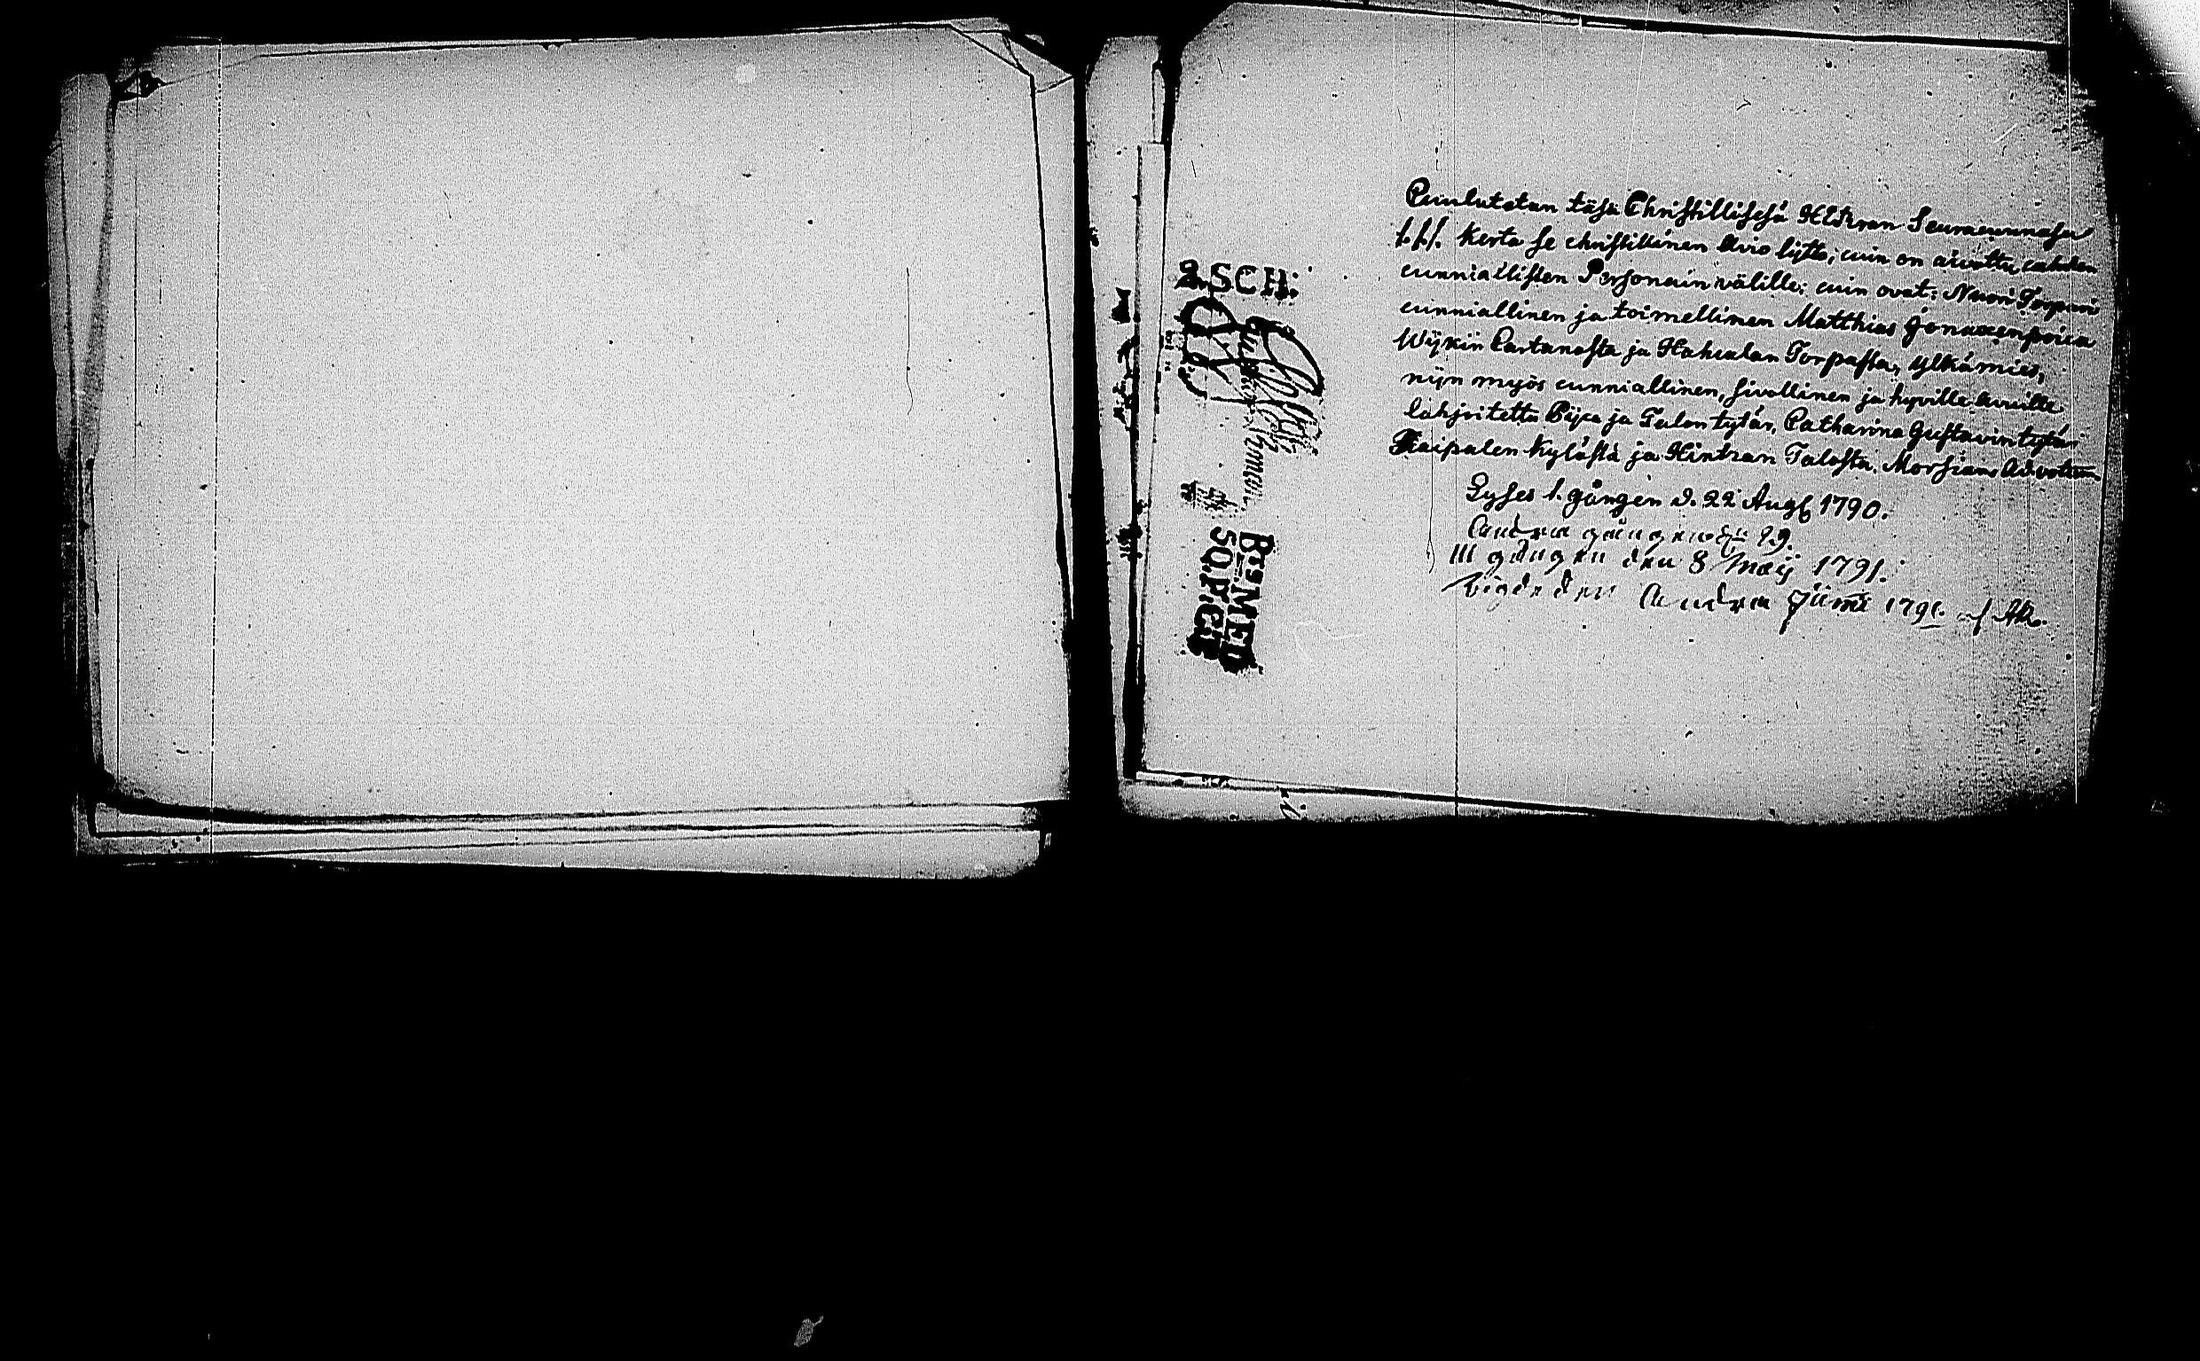 Cuulutetan täsä Christillisesä HERran Seuracunnasa
1. kerta se christillinen Avio lijtto, cuin on aivottu cahden
cunniallisten Personain välille; cuin ovat: Nuori Torpari
cunniallinen ja toimellinen Matthias Jonaxenpoica
Wijkin Cartanosta ja Hahcalan Torpasta, ylkämies,
nijn myös cunniallinen, sivollinen ja hyville avuille
lahjoitettu Pijca ja Talon tytär, Catharina Gustavintytär
Kaipalen kylästä ja Hintzan Talosta, Morsians
Lystes 1. gången d. 22 Aug 1790.
Andra gången d. 29.
III gången den 8 Maij 1791.
Vigde den Andra Junii 1791. af
2. SCH:
BTS MED
SQ. P. CH